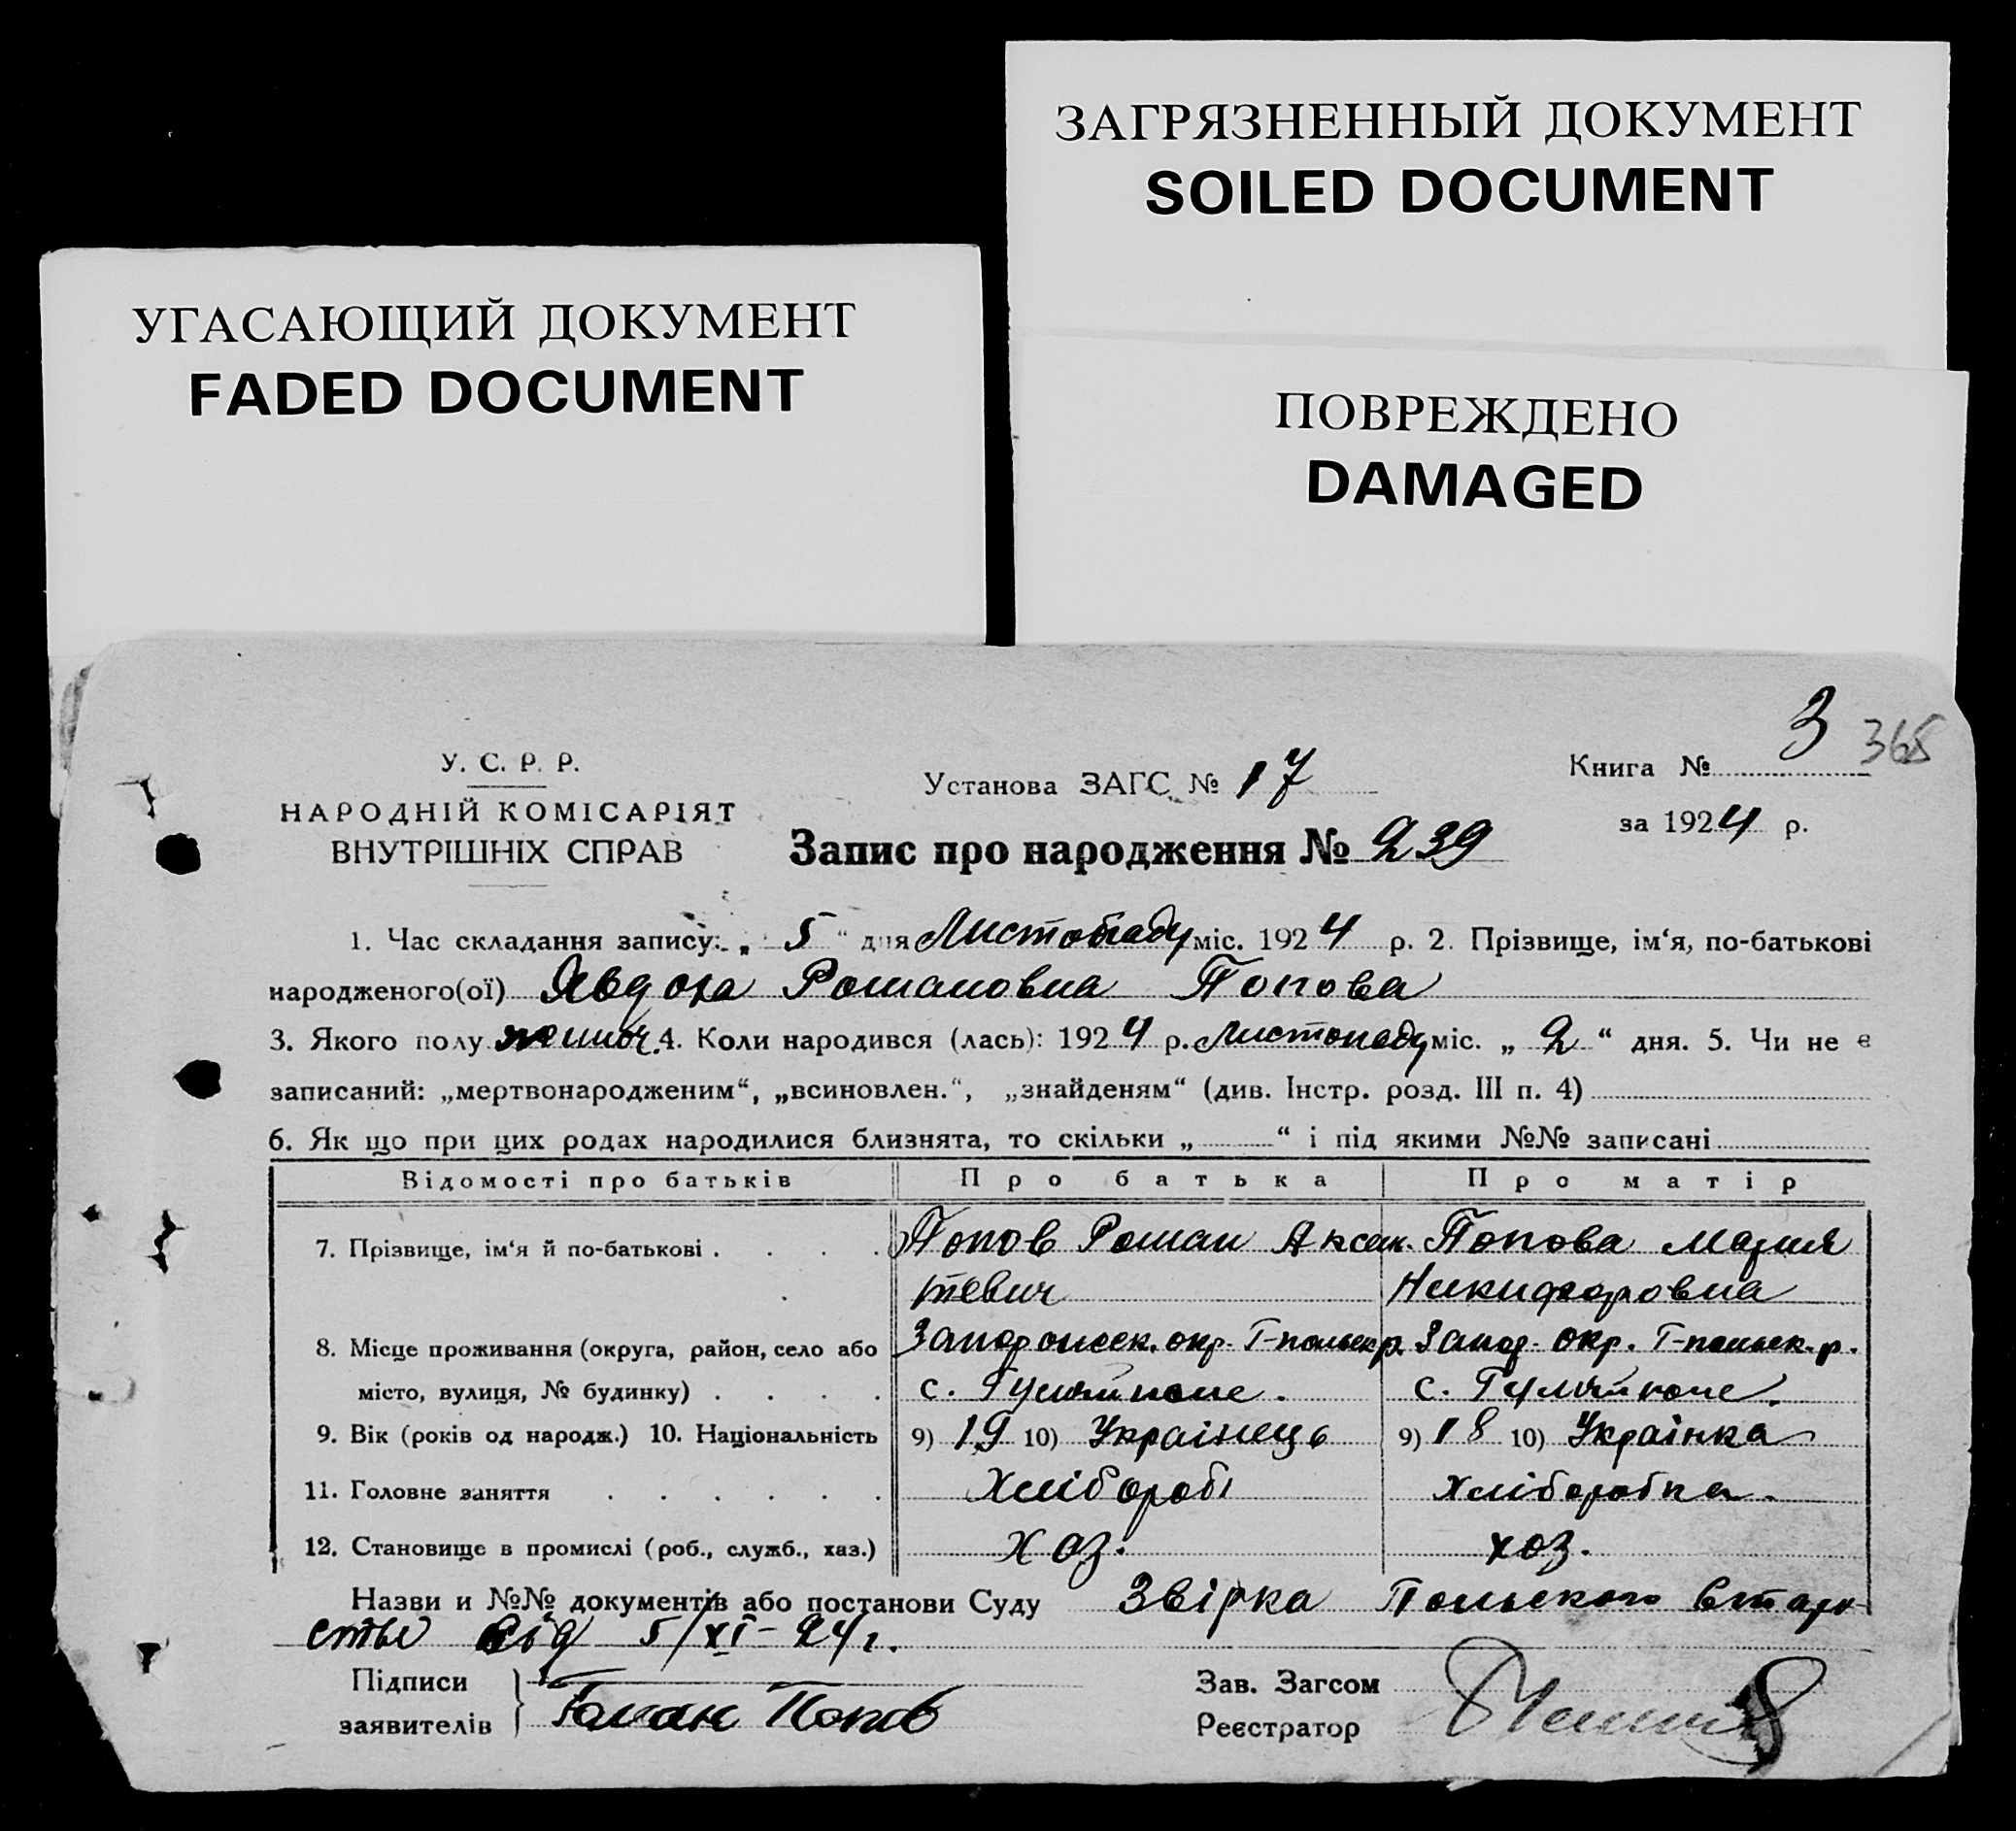 ЗАГРЯЗНЕННЫЙ ДОКУМЕНТ
SOILED DOCUMENT
УГАСАЮЩИЙ ДОКУМЕНТ
FADED DOCUMENT
ПОВРЕЖДЕНО
DAMAGED
3 365
У. С. Р. Р.
НАРОДНІЙ КОМІСАРІЯТ
ВНУТРІШНІХ СПРАВ
Установа ЗАГС № 17
Книга №
за 1924 р.
Запис про народження № 239
1. Час складання запису: „ 5 “ дня Листопаду міс. 1924 р. 2. Прізвище, ім‘я, по-батькові
народженого(ої) Явдоха Романовна Попова
3. Якого полу жіноч. 4. Коли народився (лась): 1924 р. Листопаду міс. „ 2 “ дня. 5. Чи не є
записаний: „мертвонародженим“, „всиновлен.“, „знайденям“ (див. Інстр. розд. III п. 4)
6. Як що при цих родах народилися близнята, то скільки „ “ і під якими №№ записані
Відомості про батьків Про батька Про матір
7. Прізвище, ім‘я й по-батькові . . . . Попов Роман Аксен- Попова Мария
тевич Никифоровна
8. Місце проживання (округа, район, село або Запорожск. окр. Г-польск р. Запор. окр. Г-польск. р.
місто, вулиця, № будинку) . . . . с. Гуляйполе. с. Гуляйполе.
9. Вік (років од народж.) 10. Національність 9) 19 10) Українець 9) 18 10) Українка
11. Головне заняття . . . . . . Хлібороб Хліборобка.
12. Становище в промислі (роб., служб., хаз.) хоз. хоз.
Назви и №№ документів або постанови Суду Звірка Польского
від 5/XI-24 г.
Підписи
заявителів } Роман Попов
Зав. Загсом
Реєстратор